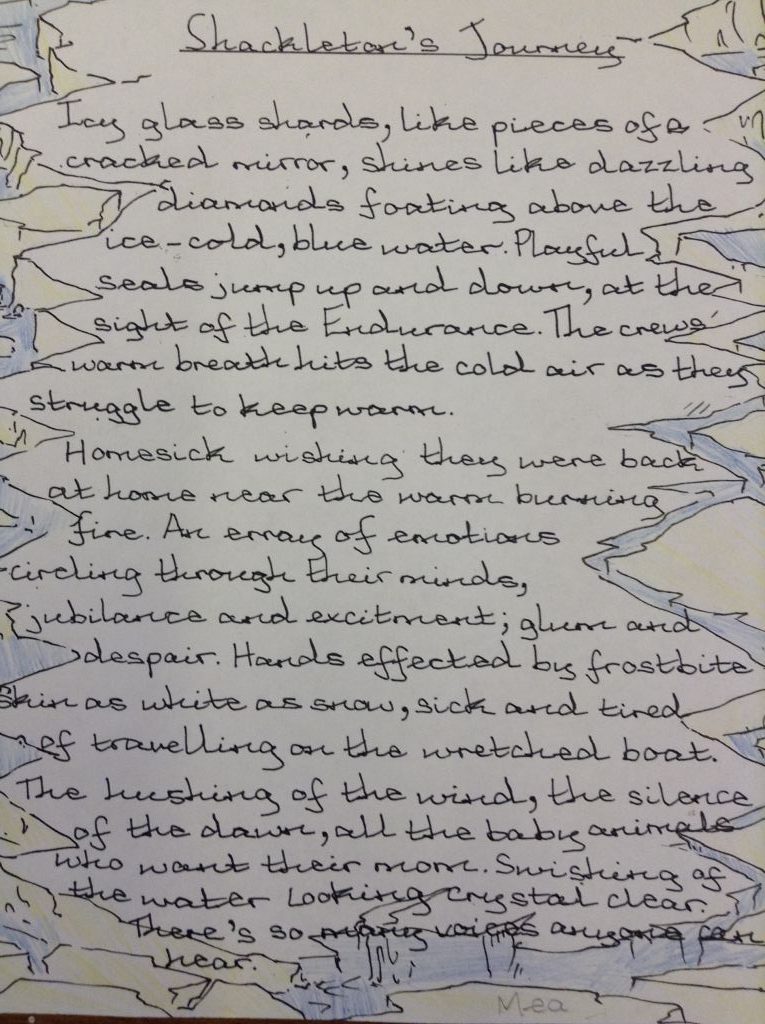 Shackleton's Journey
Icy glass shards, like pieces of a
cracked mirror, shines like dazzling
diamands foating above the
ice-cold, blue water. Playful
seals jump up and down, at the
sight of the Endurance. The crews'
warm breath hits the cold air as they
struggle to keep warm.
Homesick wishing they were back
at home near the warm burning
fire. An erray of emotions
circling through their minds,
jubilance and excitment; glum and
despair. Hands effected by frostbite
skin as white as snow, sick and tired
of travelling on the wretched boat.
The hushing of the wind, the silence
of the dawn, all the baby animals
who want their mom. Swishing of
the water looking crystal clear.
There's so many voices anyone can
hear.
Mea